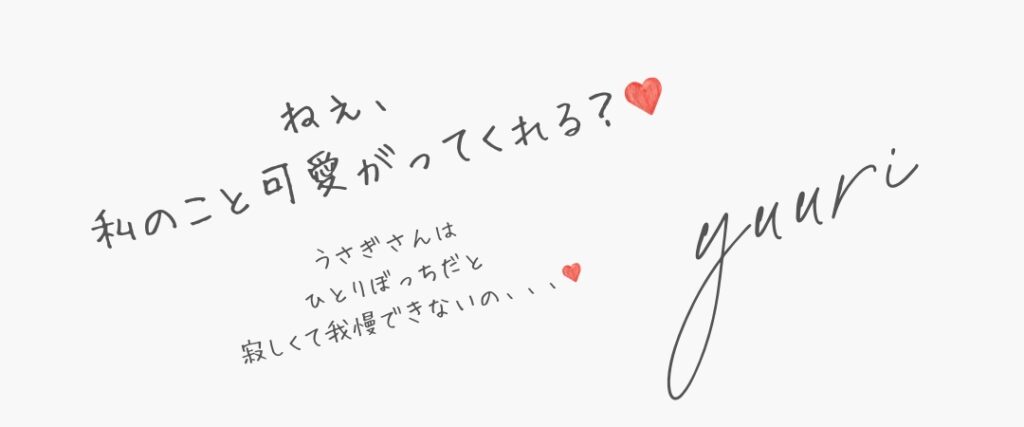 ねぇ、
私のこと可愛がってくれる?❤
うさぎさんは
ひとりぼっちだと
寂しくて我慢できないの、、、❤
yuuri